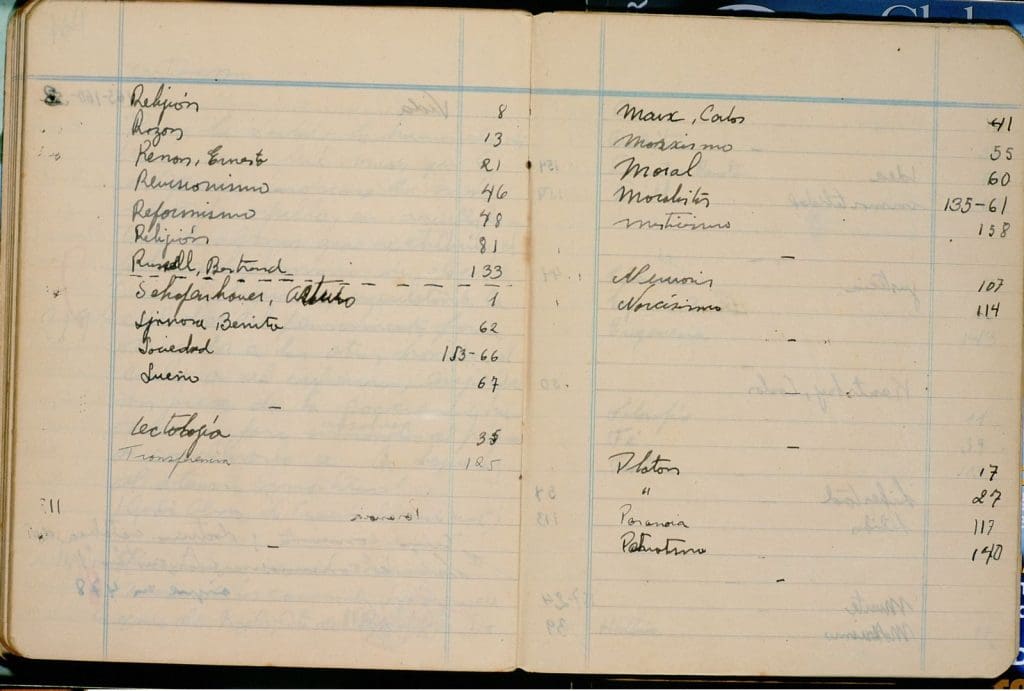 Religión 8
Razon 13
Renan, Ernesto 21
Revisionismo 46
Reformismo 48
Religión 81
Russell, Bertrand 133
Schopenhauer, Arturo 1
Spinosa, Benito 62
Sociedad 153-66
Sueño 67
35
Transferencia 125
Marx, Carlos 41
Marxismo 55
Moral 60
Moralistas 135-61
Misticismo 158
Neurosis 107
Narcisismo 114
Platon 17
" 27
Paranoia 117
Patriotismo 140